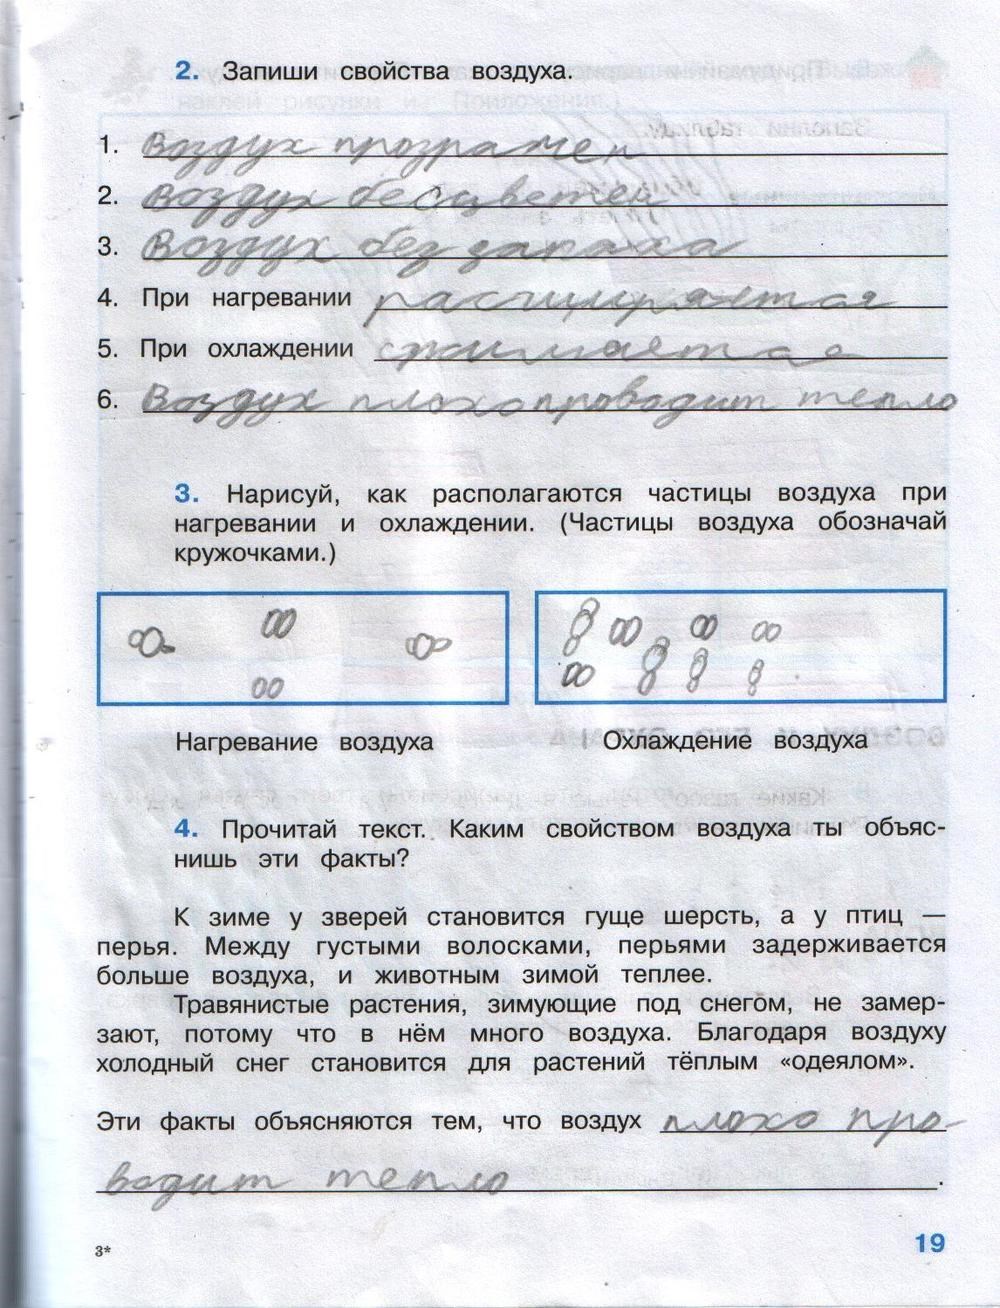 2. Запиши свойства воздуха.
1. Воздух прозрачен
2. Воздух бесцветен
3. Воздух без запаха
4. При нагревании расширяется
5. При охлаждении сжимается
6. Воздух плохо проводит тепло
3. Нарисуй, как располагаются частицы воздуха при
нагревании и охлаждении. (Частицы воздуха обозначай
кружочками.)
Нагревание воздуха
Охлаждение воздуха
4. Прочитай текст. Каким свойством воздуха ты объяс-
нишь эти факты?
К зиме у зверей становится гуще шерсть, а у птиц —
перья. Между густыми волосками, перьями задерживается
больше воздуха, и животным зимой теплее.
Травянистые растения, зимующие под снегом, не замер-
зают, потому что в нём много воздуха. Благодаря воздуху
холодный снег становится для растений тёплым «одеялом».
Эти факты объясняются тем, что воздух плохо про-
водит тепло.
3*
19